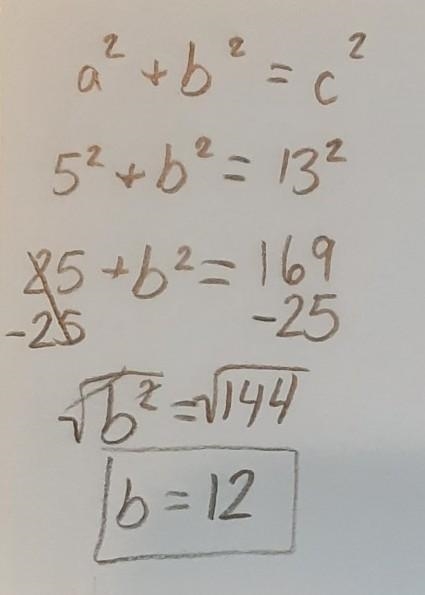 a² + b² = c²
5² + b² = 13²
25 + b² = 169
-25 -25
√b² = √144
b = 12